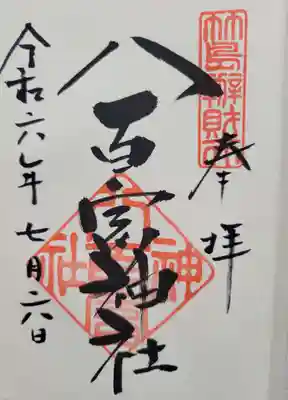 奉拝
八百富神社
令和六年七月六日
竹島辯財天
八百富神社